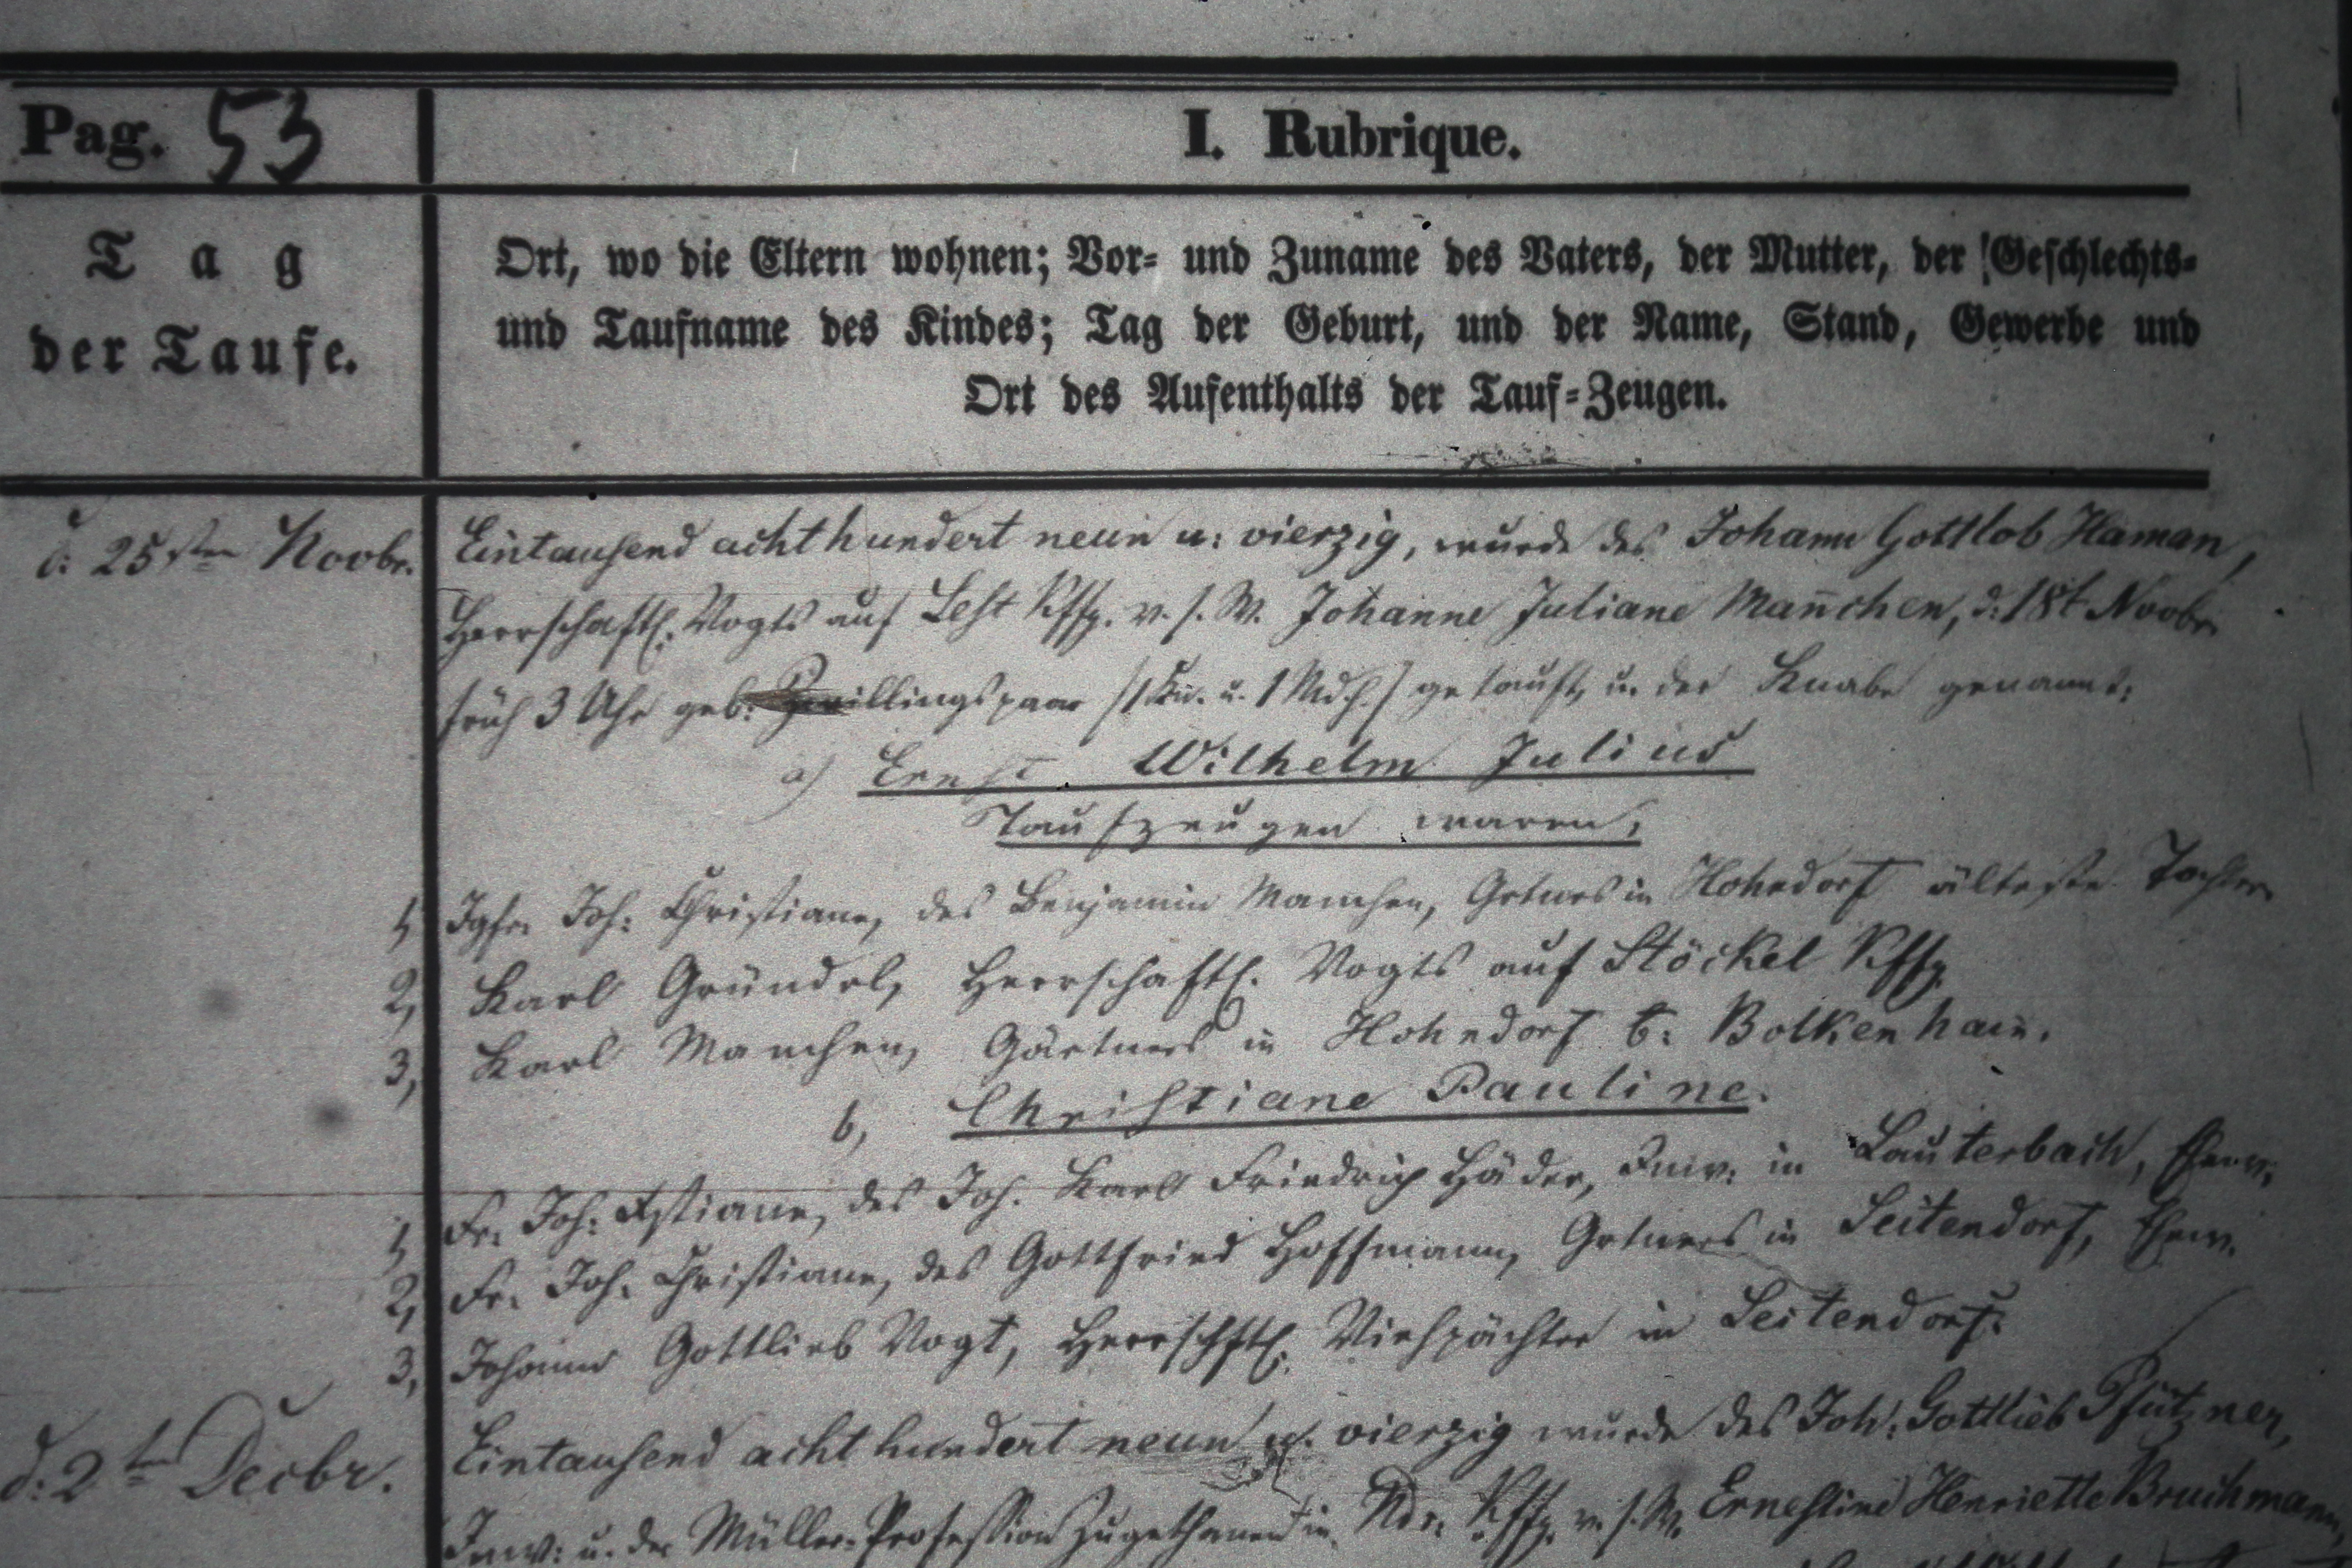 Pag. 53
I. Rubrique.
Tag
der Taufe.
Ort, wo die Eltern wohnen; Vor- und Zuname des Vaters, der Mutter, der Geschlechts-
und Taufname des Kindes; Tag der Geburt, und der Name, Stand, Gewerbe und
Ort des Aufenthalts der Tauf-Zeugen.
d: 25sten Novbr. Eintausend achthundert neun u: vierzig, wurde des Johann Gottlob Haman,
Herrschaftl. Vogts auf Lest Kffg. v. s. W. Johanne Juliane Man̄chen, d: 18t Novbr.
früh 3 Uhr geb: Zwillingspaar /1 Kn. u. 1 Mdch./ getauft, u. der Knabe genannt:
a) Ernst Wilhelm Julius
Taufzeugen waren:
1, Jgfr. Joh: Christiane, des Benjamin Manchen, Grtners in Hohndorf älteste Tochter.
2, Karl Gründel, Herrschaftl. Vogts auf Stöckel Kffg.
3, Karl Manchen, Gärtners in Hohndorf b: Bolkenhain.
b, Christiane Pauline.
1, Fr. Joh: Xstiane, des Joh. Karl Friedrich Häder, Inw: in Lauterbach, Ehew.
2, Fr. Joh. Christiane, des Gottfried Hoffmann, Grtners in Seitendorf, Ehew.
3, Johann Gottlieb Vogt, Herrschftl. Viehpächter in Seitendorf.
d: 2ten Decbr. Eintausend achthundert neun u. vierzig wurde des Joh: Gottlieb Pfützner,
Inw: u. der Müller-Profession zugethanen in Ndr. Kffg. v. s. W. Ernestine Henriette Bruchmann